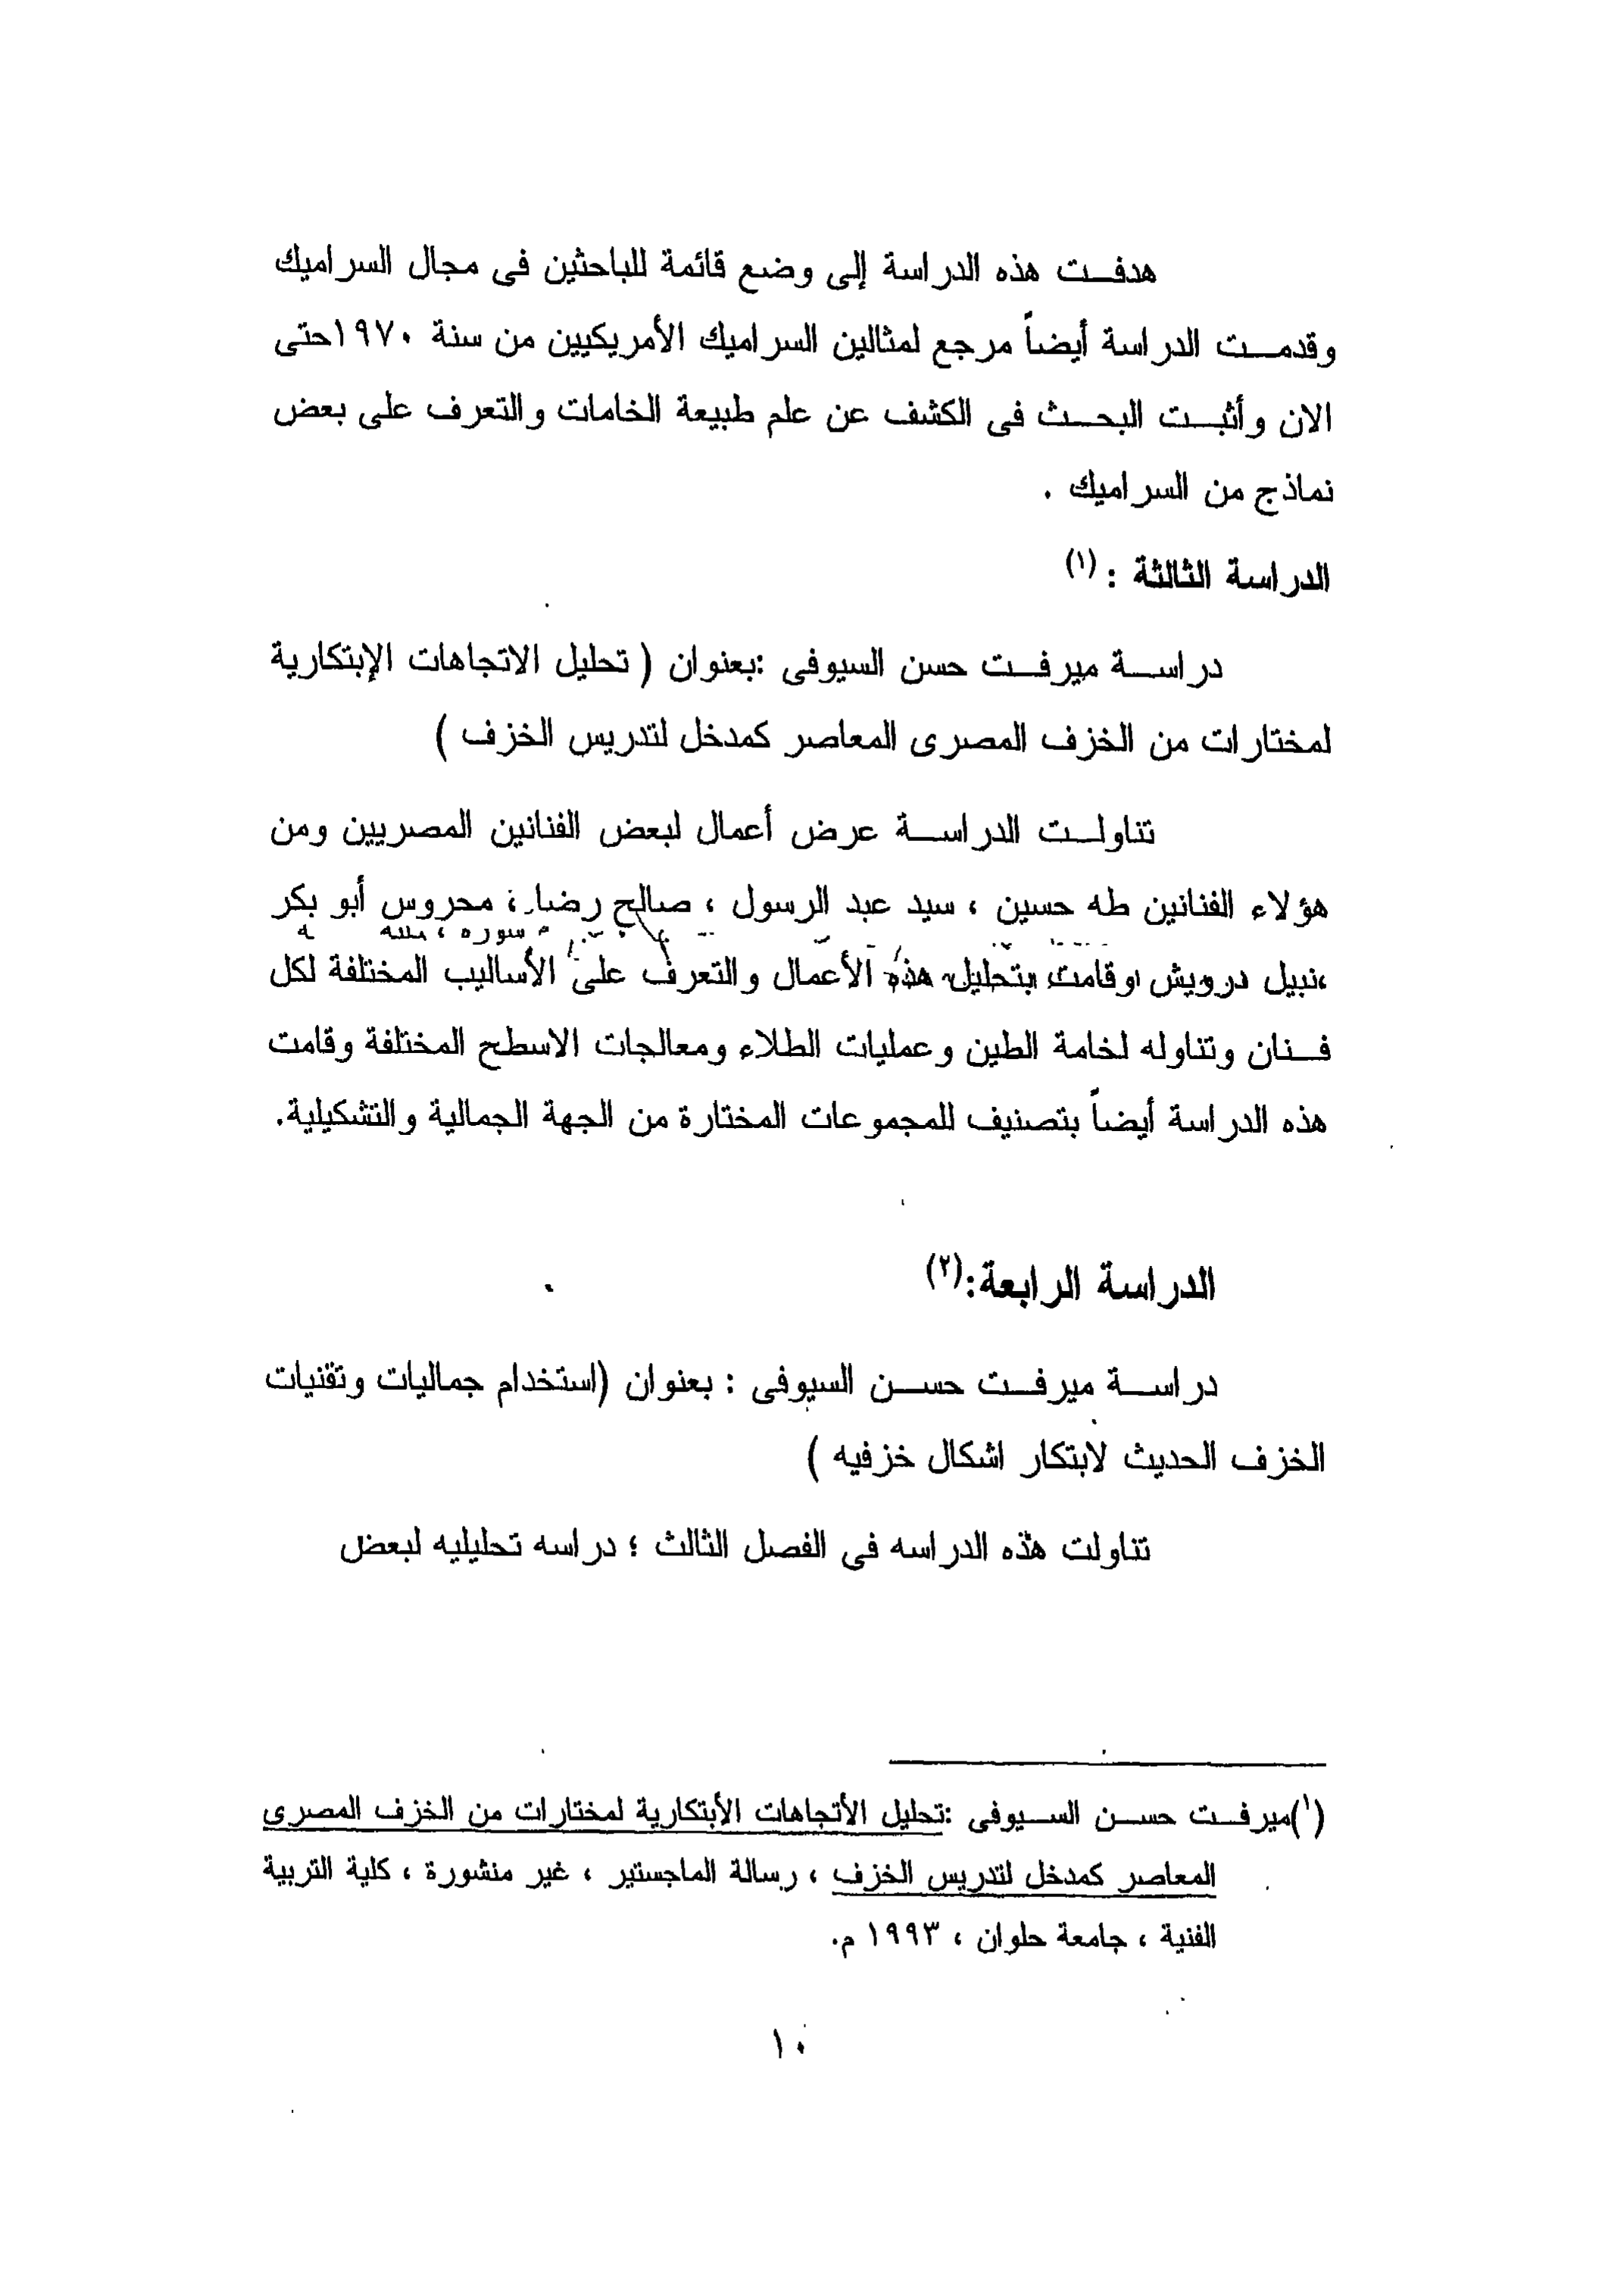 هدفت هذه الدراسة إلى وضع قائمة للباحثين فى مجال السراميك
وقدمت الدراسة أيضاً مرجع لمثالين السراميك الأمريكيين من سنة ١٩٧٠حتى
الان وأثبت البحث فى الكشف عن علم طبيعة الخامات والتعرف على بعض
نماذج من السراميك .
الدراسة الثالثة : (١)
دراسة ميرفت حسن السيوفى :بعنوان ( تحليل الاتجاهات الإبتكارية
لمختارات من الخزف المصرى المعاصر كمدخل لتدريس الخزف )
تناولت الدراسة عرض أعمال لبعض الفنانين المصريين ومن
هؤلاء الفنانين طه حسين ، سيد عبد الرسول ، صالح رضا ، محروس أبو بكر
،نبيل درويش وقامت بتحليل هذه الأعمال والتعرف على الأساليب المختلفة لكل
فنان وتناوله لخامة الطين وعمليات الطلاء ومعالجات الاسطح المختلفة وقامت
هذه الدراسة أيضاً بتصنيف للمجموعات المختارة من الجهة الجمالية والتشكيلية.
الدراسة الرابعة:(٢)
دراسة ميرفت حسن السيوفى : بعنوان (استخدام جماليات وتقنيات
الخزف الحديث لابتكار اشكال خزفيه )
تناولت هذه الدراسه فى الفصل الثالث ؛ دراسه تحليليه لبعض
(١)ميرفت حسن السيوفى :تحليل الأتجاهات الأبتكارية لمختارات من الخزف المصرى
المعاصر كمدخل لتدريس الخزف ، رسالة الماجستير ، غير منشورة ، كلية التربية
الفنية ، جامعة حلوان ، ١٩٩٣ م.
١٠